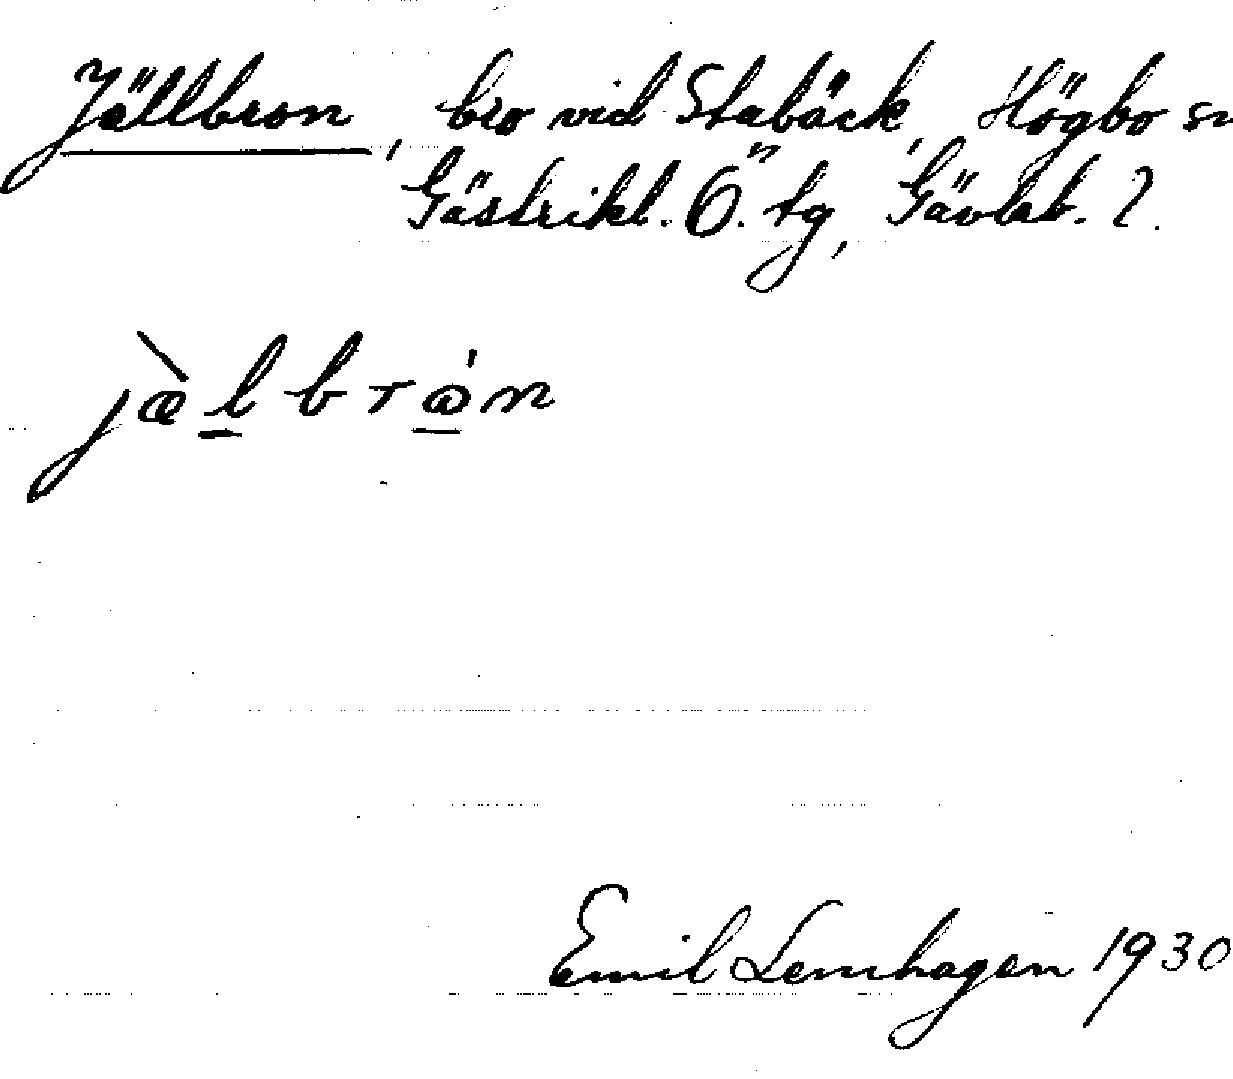 Jällbron, bro vid Stabäck, Högbo sn
Gästrikl. Ö. tg, Gävleb. l.
jæ̀lbrån
Emil Lenhagen 1930